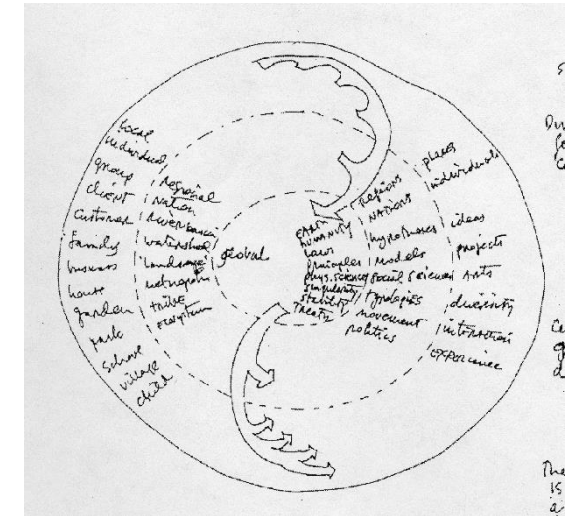 local
individual
group
client
customer
family
business
house
garden
park
school
village
child
regional
nation
watershed
landscape
metropolis
tribe
ecosystem
global
EARTH
HUMANITY
laws
principles
phys. sciences
singularity
stability
treaty
regions
nations
hypotheses
models
social sciences
typologies
movement
politics
places
individuals
ideas
projects
arts
diversity
interaction
experience